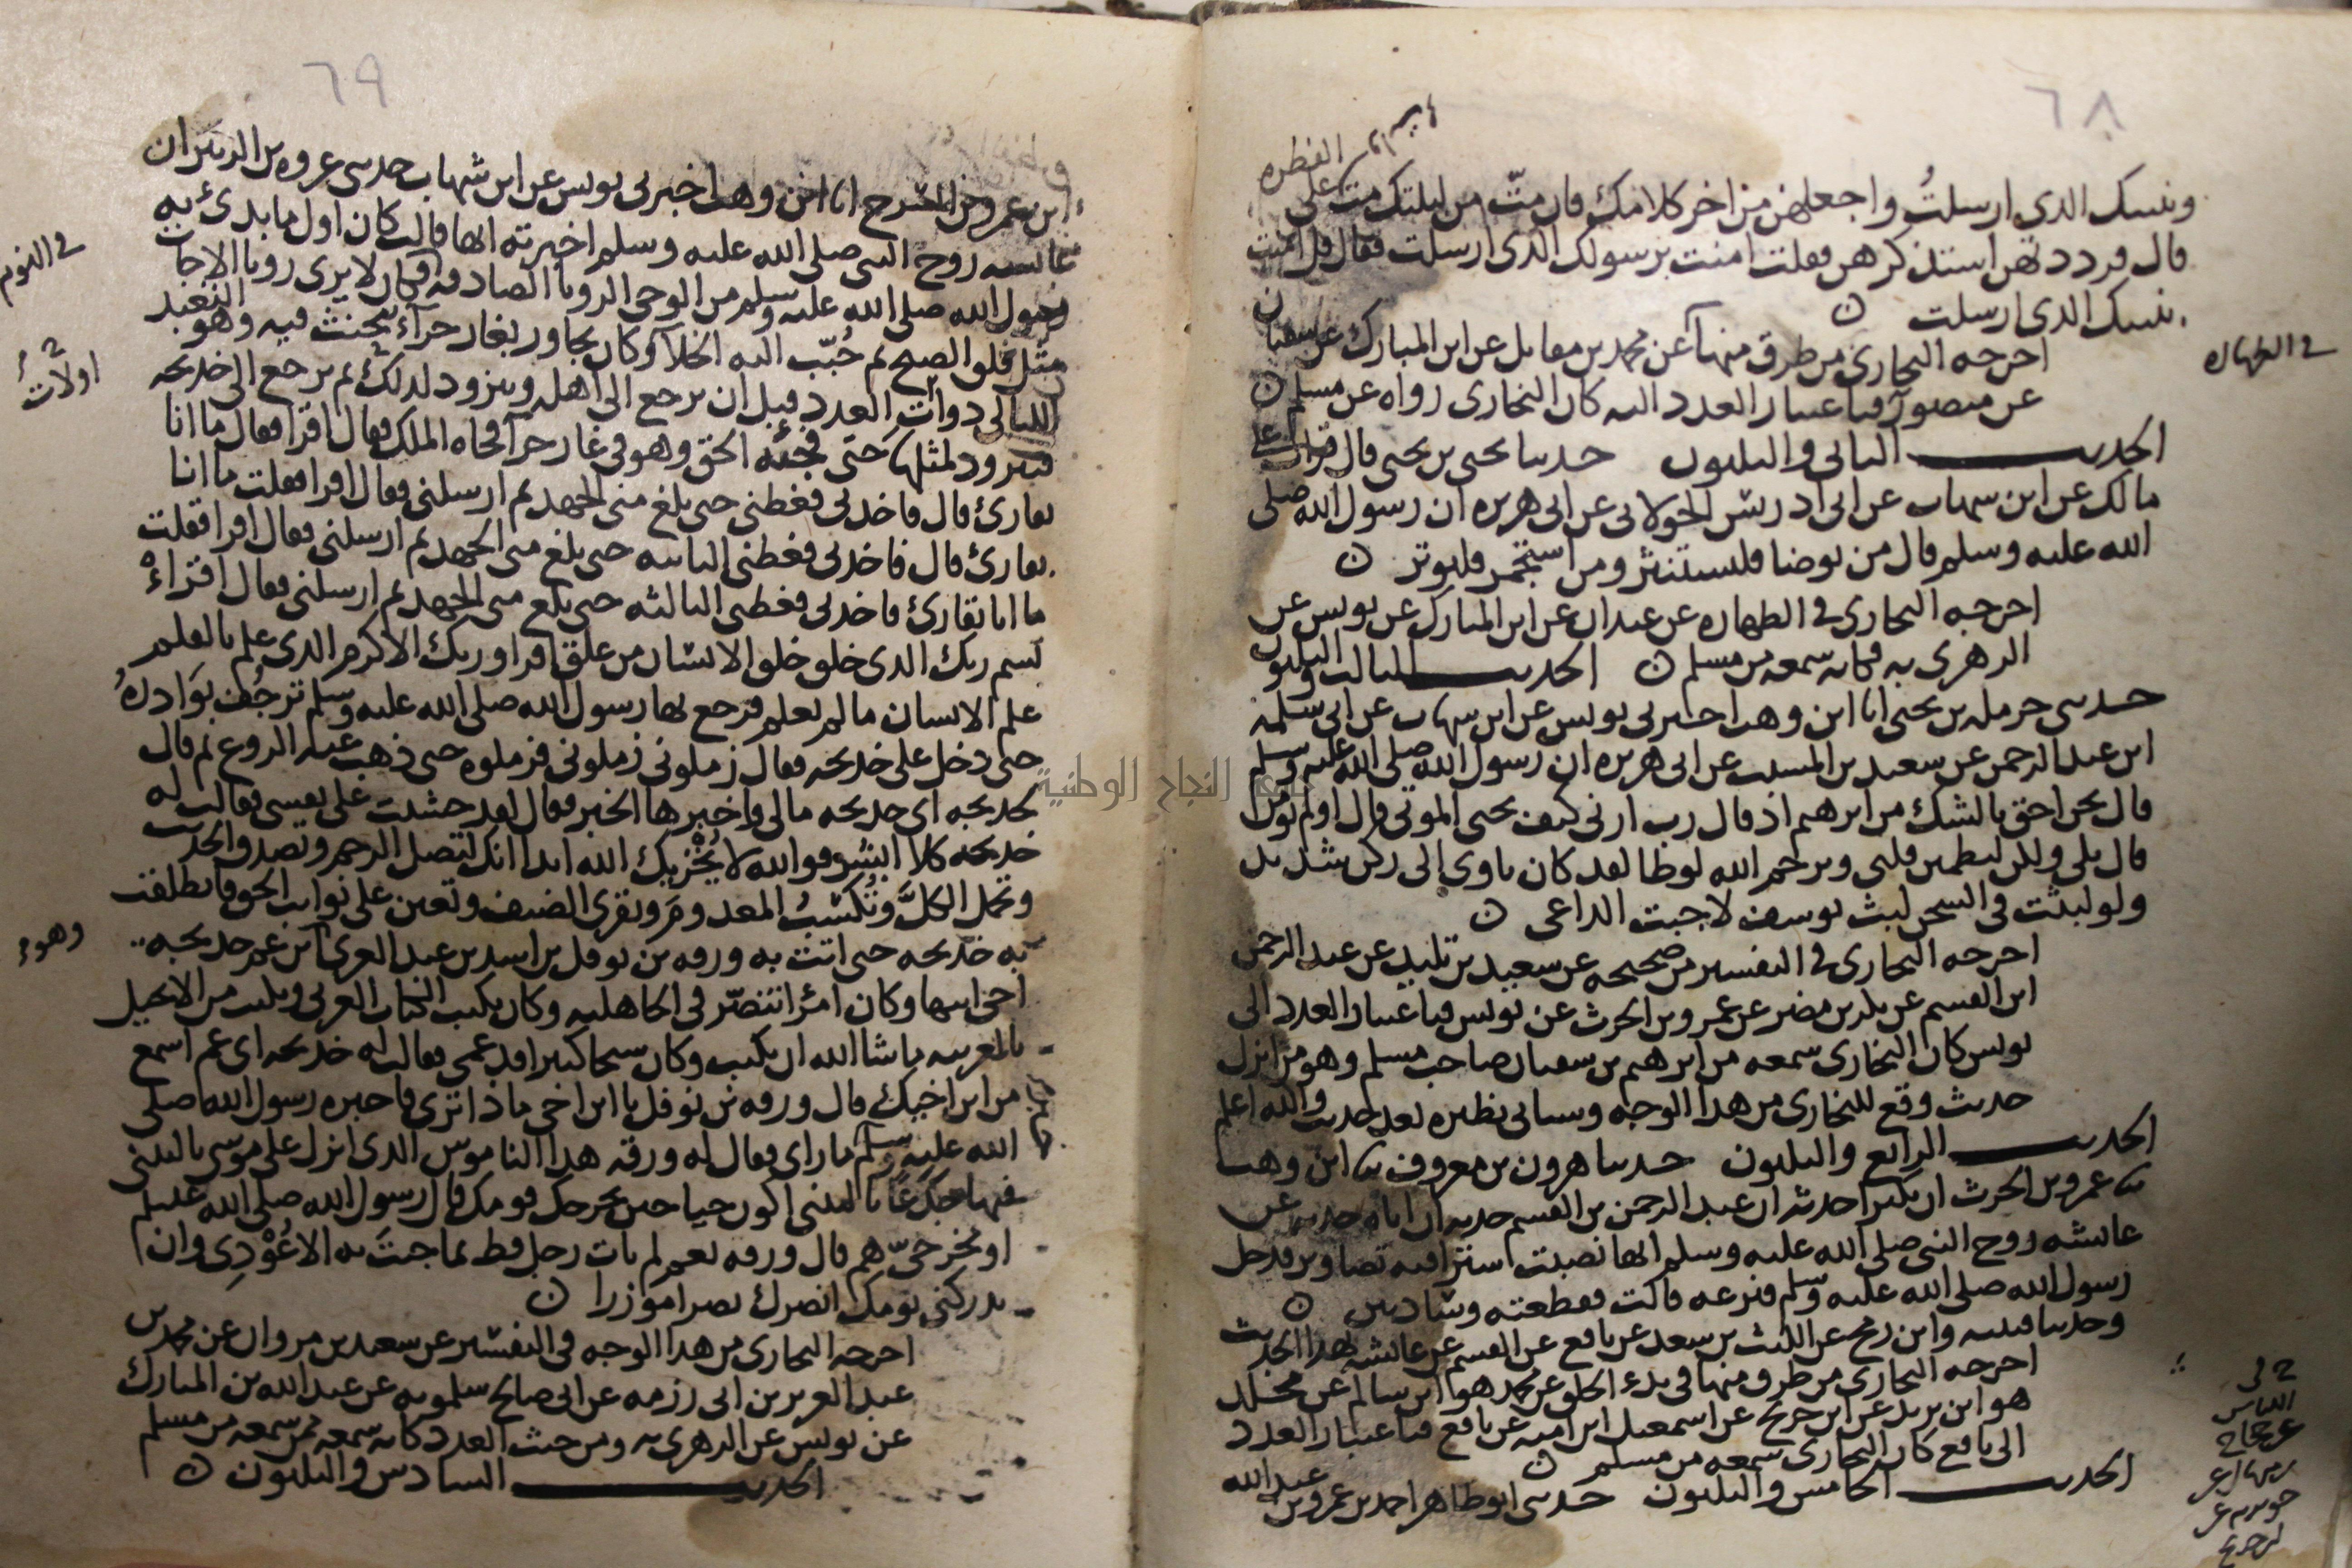 ٦٨
ونبيك الذى ارسلتَ واجعلهن من اخر كلامك فان متّ من ليلتك مت على
الفطره
قال فرددتهن استذكرهن فقلت امنت برسولك الذى ارسلت فقال قل امنت
بنبيك الذى ارسلت ن
اخرجه البخارى من طرق منها عن محمد بن مقاتل عن ابن المبارك عن سفيان
عن منصور فباعتبار العدد اليه كان البخارى رواه عن مسلم ن
فى الطهاره
الحديث الثانى والثلثون حدثنا يحيى بن يحيى قال قرات على
مالك عن ابن شهاب عن ابى ادريس الخولانى عن ابى هريره ان رسول الله صلى
الله عليه وسلم قال من توضا فليستنثر ومن استجمر فليوتر ن
اخرجه البخارى فى الطهاره عن عبدان عن ابن المبارك عن يونس عن
الزهرى به فكانه سمعه من مسلم ن الحديث الثالث والثلثون
حدثنى حرمله بن يحيى انا ابن وهب اخبرنى يونس عن ابن شهاب عن ابى سلمه
ابن عبد الرحمن عن سعيد بن المسيب عن ابى هريره ان رسول الله صلى الله عليه وسلم
قال نحن احق بالشك من ابرهيم اذ قال رب ارنى كيف تحيى الموتى قال اولم تومن
قال بلى ولكن ليطمين قلبى ويرحم الله لوطا لقد كان ياوى الى ركن شديد
ولو لبثت فى السجن لبث يوسف لاجبت الداعى ن
اخرجه البخارى فى التفسير من صحيحه عن سعيد بن تليد عن عبد الرحمن
ابن القسم عن بكر بن مضر عن عمرو بن الحرث عن يونس فباعتبار العدد الى
يونس كان البخارى سمعه من ابرهيم بن سفيان صاحب مسلم وهو من انزل
حديث وقع للبخارى من هذا الوجه وسياتى نظيره بعد حديث والله اعلم
الحديث الرابع والثلثون حدثنا هرون بن معروف ثنا ابن وهب
ثنا عمرو بن الحرث ان بكيرا حدثه ان عبد الرحمن بن القسم حدثه ان اباه حدثه عن
عائشه زوج النبى صلى الله عليه وسلم انها نصبت سترا فيه تصاوير فدخل
رسول الله صلى الله عليه وسلم فنزعه قالت فقطعته وسادتين ن
وحدثنا قتيبه وابن رمح عن الليث بن سعد عن نافع عن القسم عن عائشه بهذا الحديث
اخرجه البخارى من طرق منها فى بدء الخلق عن محمد هو ابن سالم عن مخلد
هو ابن يزيد عن ابن جريج عن اسمعيل ابن اميه عن نافع فباعتبار العدد
الى نافع كان البخارى سمعه من مسلم ن
الحديث الخامس والثلثون حدثنى ابو طاهر احمد بن عمرو بن عبد الله
اللباس
عن حجاج
٦٩
ابن عمرو بن السرح انا ابن وهب اخبرنى يونس عن ابن شهاب حدثنى عروه بن الزبير ان
عائشه زوج النبى صلى الله عليه وسلم اخبرته انها قالت كان اول ما بدئ به
رسول الله صلى الله عليه وسلم من الوحى الرويا الصادقه فى النوم فكان لا يرى رويا الا جات
مثل فلق الصبح ثم حُبّب اليه الخلآ وكان يجاور بغار حرآء يتحنث فيه وهو التعبد
الليالى ذوات العدد قبل ان يرجع الى اهله ويتزود لذلك ثم يرجع الى خديجه
اولات
فيتزود لمثلها حتى فجئه الحق وهو فى غار حرآ فجاه الملك فقال اقرا فقال ما انا
بقارئ قال فاخذنى فغطنى حتى بلغ منى الجهد ثم ارسلنى فقال اقرا فقلت ما انا
بقارئ قال فاخذنى فغطنى الثانيه حتى بلغ منى الجهد ثم ارسلنى فقال اقرا فقلت
ما انا بقارئ فاخذنى فغطنى الثالثه حتى بلغ منى الجهد ثم ارسلنى فقال اقراء
بسم ربك الذى خلق خلق الانسان من علق اقرا وربك الاكرم الذى علم بالقلم
علم الانسان مالم يعلم فرجع بها رسول الله صلى الله عليه وسلم ترجُف بوادرهُ
حتى دخل على خديجه فقال زملونى زملونى فزملوه حتى ذهب عنه الروع ثم قال
لخديجه اى خديجه مالى واخبرها الخبر فقال لقد خشيت على نفسى فقالت له
خديجه كلا ابشر فوالله لا يُخْزيك الله ابدا انك لتصل الرحم وتصدق الحديث
وتحمل الكلَّ وتُكسبُ المعدومَ وتقرى الضيف وتعين على نوايب الحق فانطلقت
به خديجه حتى اتت به ورقه بن نوفل بن اسد بن عبد العزى ابن عم خديجه
وهو
اخى ابيها وكان امرًا تنصّر فى الجاهليه وكان يكتب الكتاب العربى ويكتب من الانجيل
بالعربيه ما شا الله ان يكتب وكان شيخا كبيرا قد عمى فقالت له خديجه اى عم اسمع
من ابن اخيك قال ورقه بن نوفل يا ابن اخى ماذا ترى فاخبره رسول الله صلى
الله عليه وسلم ما راى فقال له ورقه هذا الناموس الذى انزل على موسى يا ليتنى
فيها جذعًا يا ليتنى اكون حيا حين يخرجك قومك قال رسول الله صلى الله عليه وسلم
او مخرجىّ هم قال ورقه نعم لم يات رجل قط بما جيتَ به الا عُوْدِى وان
يدركنى يومك انصرك نصرا موزرا ن
اخرجه البخارى من هذا الوجه فى التفسير عن سعيد بن مروان عن محمد بن
عبد العزيز بن ابى رزمه عن ابى صالح سلمويه عن عبد الله بن المبارك
عن يونس عن الزهرى به ومن حيث العدد كانه سمعه ممن سمعه من مسلم
الحديث السادس والثلثون ن
جامعة النجاح الوطنية